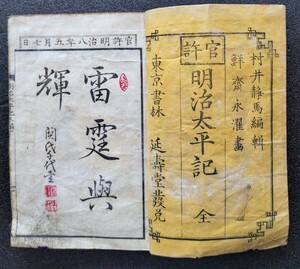 官許
村井静馬編輯
鮮齋永濯畫
明治太平記 全
東京書林 延壽堂發兌
官許明治八年五月七日
雷霆與
輝